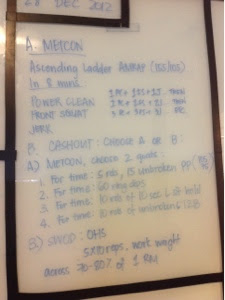 28 DEC 2012
A. METCON:
Ascending Ladder AMRAP (155/105)
In 8 mins:
POWER CLEAN 1 + 1 + 1 THEN
FRONT SQUAT
JERK
B. CASHOUT: CHOOSE A or B:
A) METCON, choose 2 goats:
1. For time: 5 rds, 15 unbroken PP
2. For time: 60 ring dips
3. For time: 10 rds of 10 sec L sit hold
4. For time: 10 rds of unbroken
B) SWOD: OHS
5x10 reps, work weight
across 70-80% of 1 RM